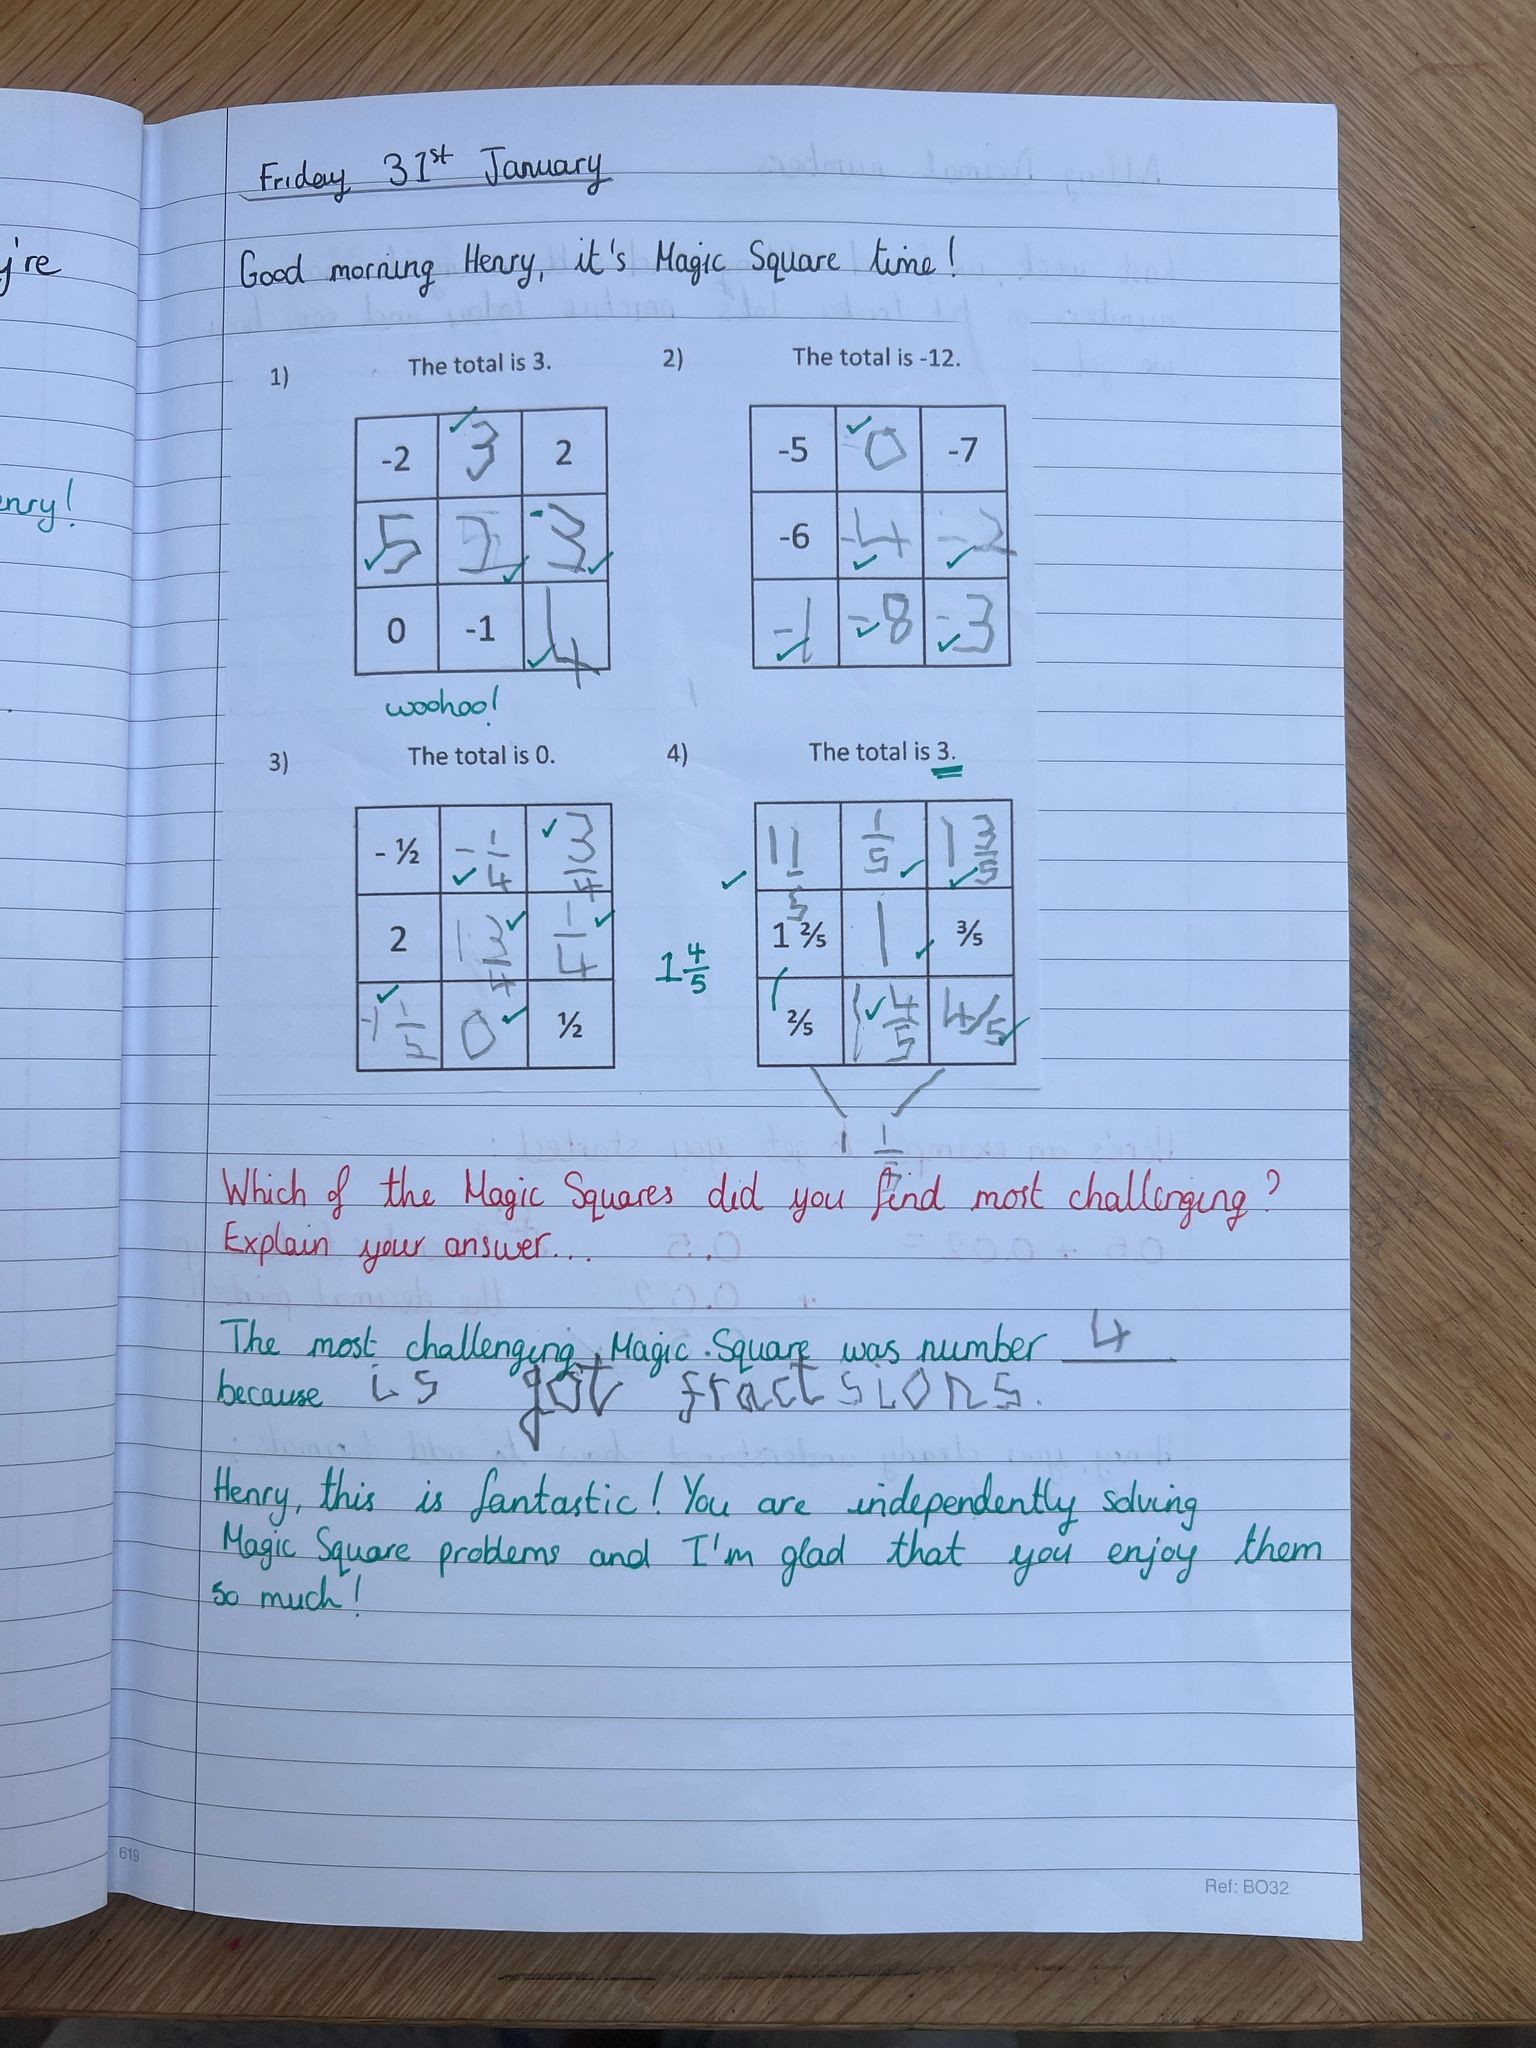 y're
enry!
Friday 31st January
Good morning Henry, it's Magic Square time!
1) The total is 3.
-2 3 2
5 1 -3
0 -1 4
woohoo!
2) The total is -12.
-5 0 -7
-6 -4 -2
-1 -8 -3
3) The total is 0.
- ½ - 1/4 3/4
2 1/4
-1 1/2 0 ½
4) The total is 3.
1 1/5 1/5 1 3/5
1 ⅖ 1 ⅗
⅖ 1 4/5 4/5
1 4/5
Which of the Magic Squares did you find most challenging?
Explain your answer...
The most challenging Magic Square was number 4
because is got fractsions.
Henry, this is fantastic! You are independently solving
Magic Square problems and I'm glad that you enjoy them
so much!
619
Ref: BO32